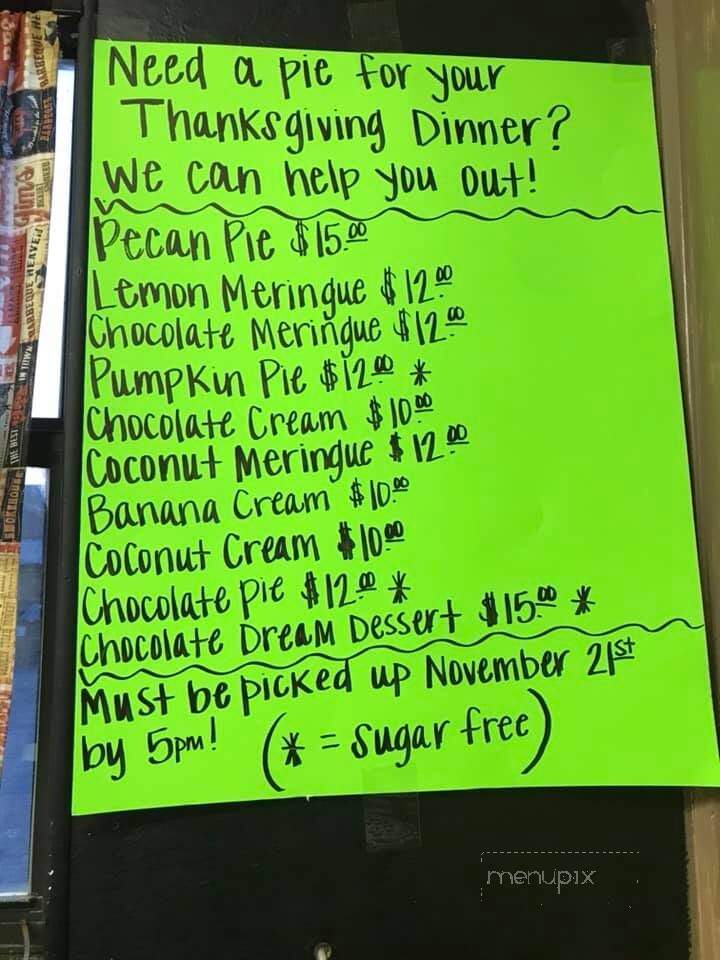 Need a pie for your
Thanksgiving Dinner?
We can help you out!
Pecan Pie $15.00
Lemon Meringue $12.00
Chocolate Meringue $12.00
Pumpkin Pie $12.00 *
Chocolate Cream $10.00
Coconut Meringue $12.00
Banana Cream $10.00
Coconut Cream $10.00
Chocolate pie $12.00 *
Chocolate Dream Dessert $15.00 *
Must be picked up November 21st
by 5pm! (* = sugar free)
menupix
BARBEQUE HEAVEN
IN TOWN
THE BEST
SMOKEHOUSE